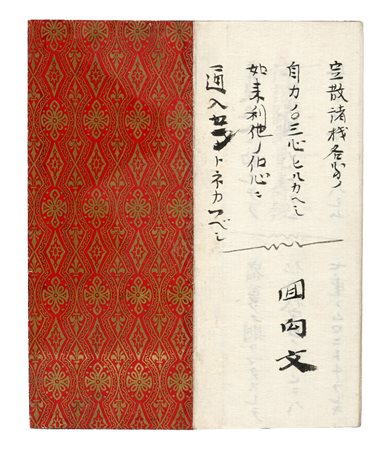 定散諸機各別ノ
自力ノ三心ヒルカヘシ
如来利他ノ信心ニ
通入セントネカフベシ
回向文